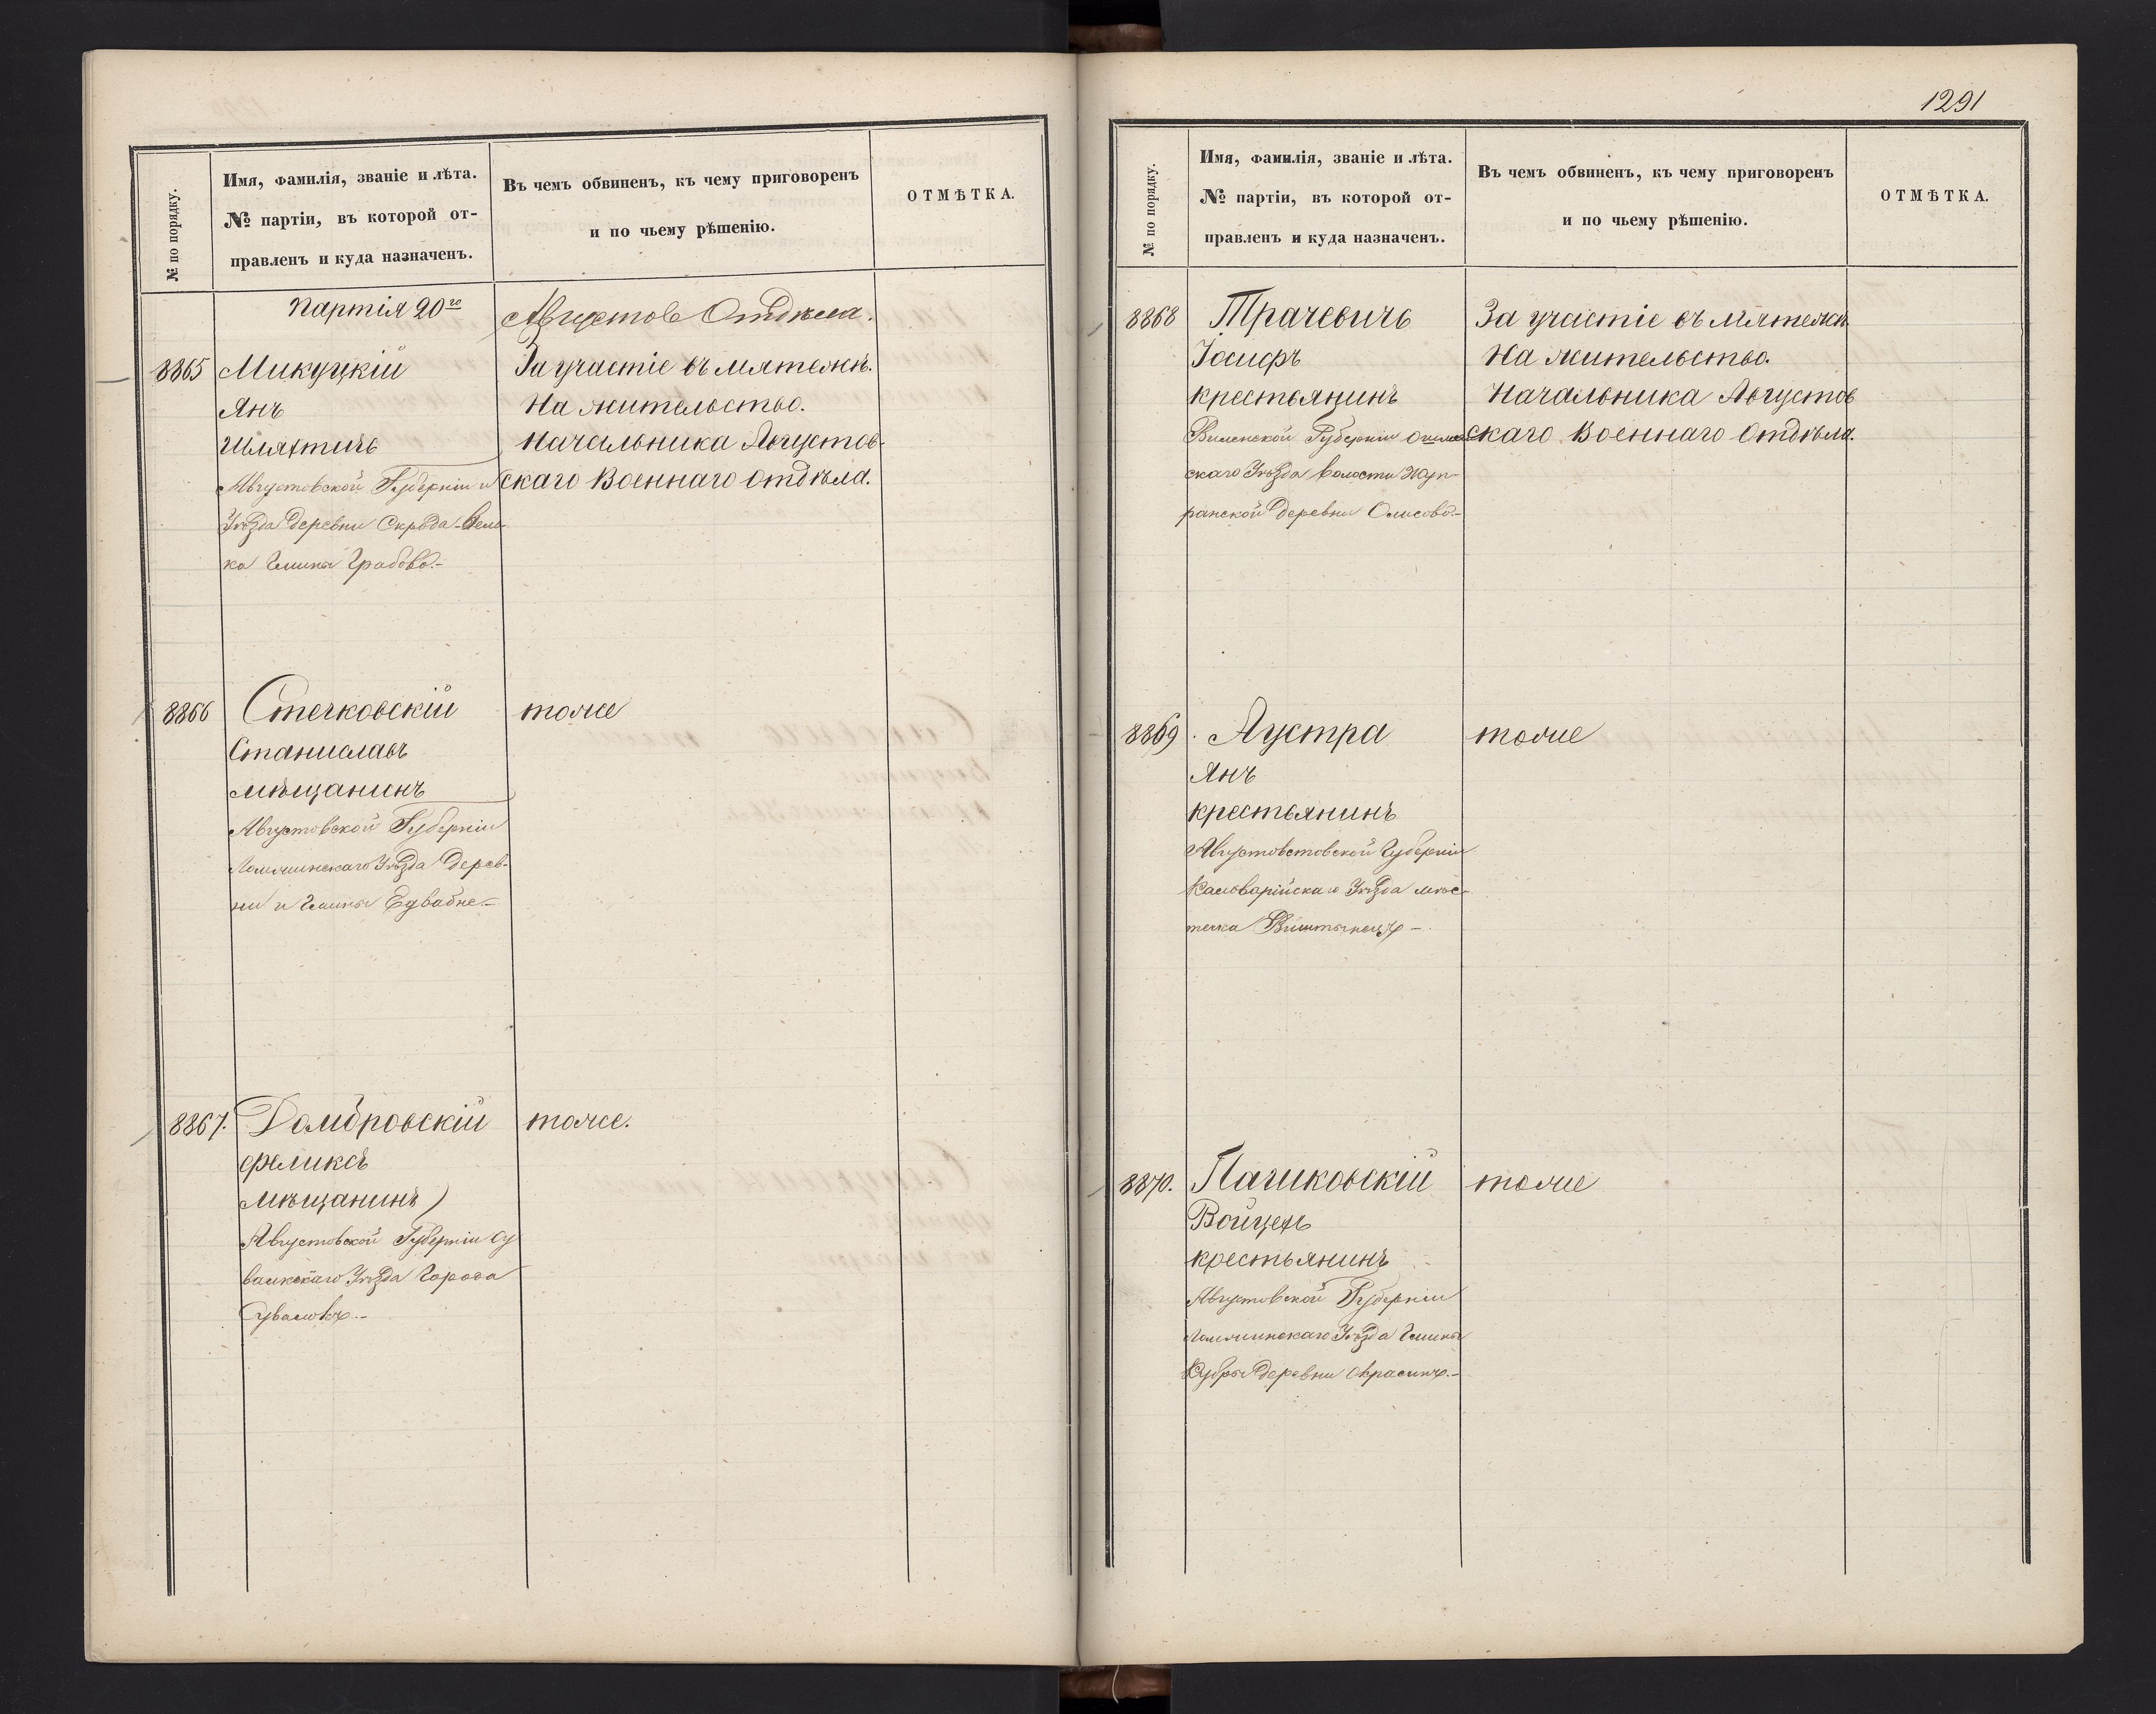 № по порядку.
Имя, фамилія, званіе и лѣта.
№ партіи, въ которой от-
правленъ и куда назначенъ.
Въ чемъ обвиненъ, къ чему приговоренъ
и по чьему рѣшенію.
ОТМѢТКА.
Партія 20го
Августов Отдѣла.
8865
Микуцкій
Янъ
Шляхтичъ
Августовской Губерніи и
Уѣзда деревни Скрода-Вель-
ка Гмины Грабово.-
За участіе въ мятежѣ.
На жительство.
Начальника Августов-
скаго Военнаго Отдѣла.
8866
Стечковскій
Станиславъ
мѣщанинъ
Августовской Губерніи
Ломжинскаго Уѣзда Дерев-
ни и Гмины Едвабне.-
тоже
8867.
Домбровскій
Феликсъ
Мѣщанинъ
Августовской Губерніи Су
валкскаго Уѣзда Города
Сувалокъ.-
тоже.
1291
№ по порядку.
Имя, фамилія, званіе и лѣта.
№ партіи, въ которой от-
правленъ и куда назначенъ.
Въ чемъ обвиненъ, къ чему приговоренъ
и по чьему рѣшенію.
ОТМѢТКА.
8868
Трачевичъ
Іосифъ
крестьянинъ
Виленской Губерніи Ошмян
скаго Уѣзда Волости Жуп-
ранской деревни
За участіе въ мятежѣ
На жительство.
Начальника Августов
скаго Военнаго Отдѣла.
8869
Аустра
Янъ
крестьянинъ
Августовстовской Губерніи
Кальварійскаго Уѣзда мѣс-
течка Виштынецъ -
тоже
8870.
Пачковскій
Войцехъ
крестьянинъ
Августовской Губерніи
Ломжинскаго Уѣзда Гмины
Кубры деревни
тоже